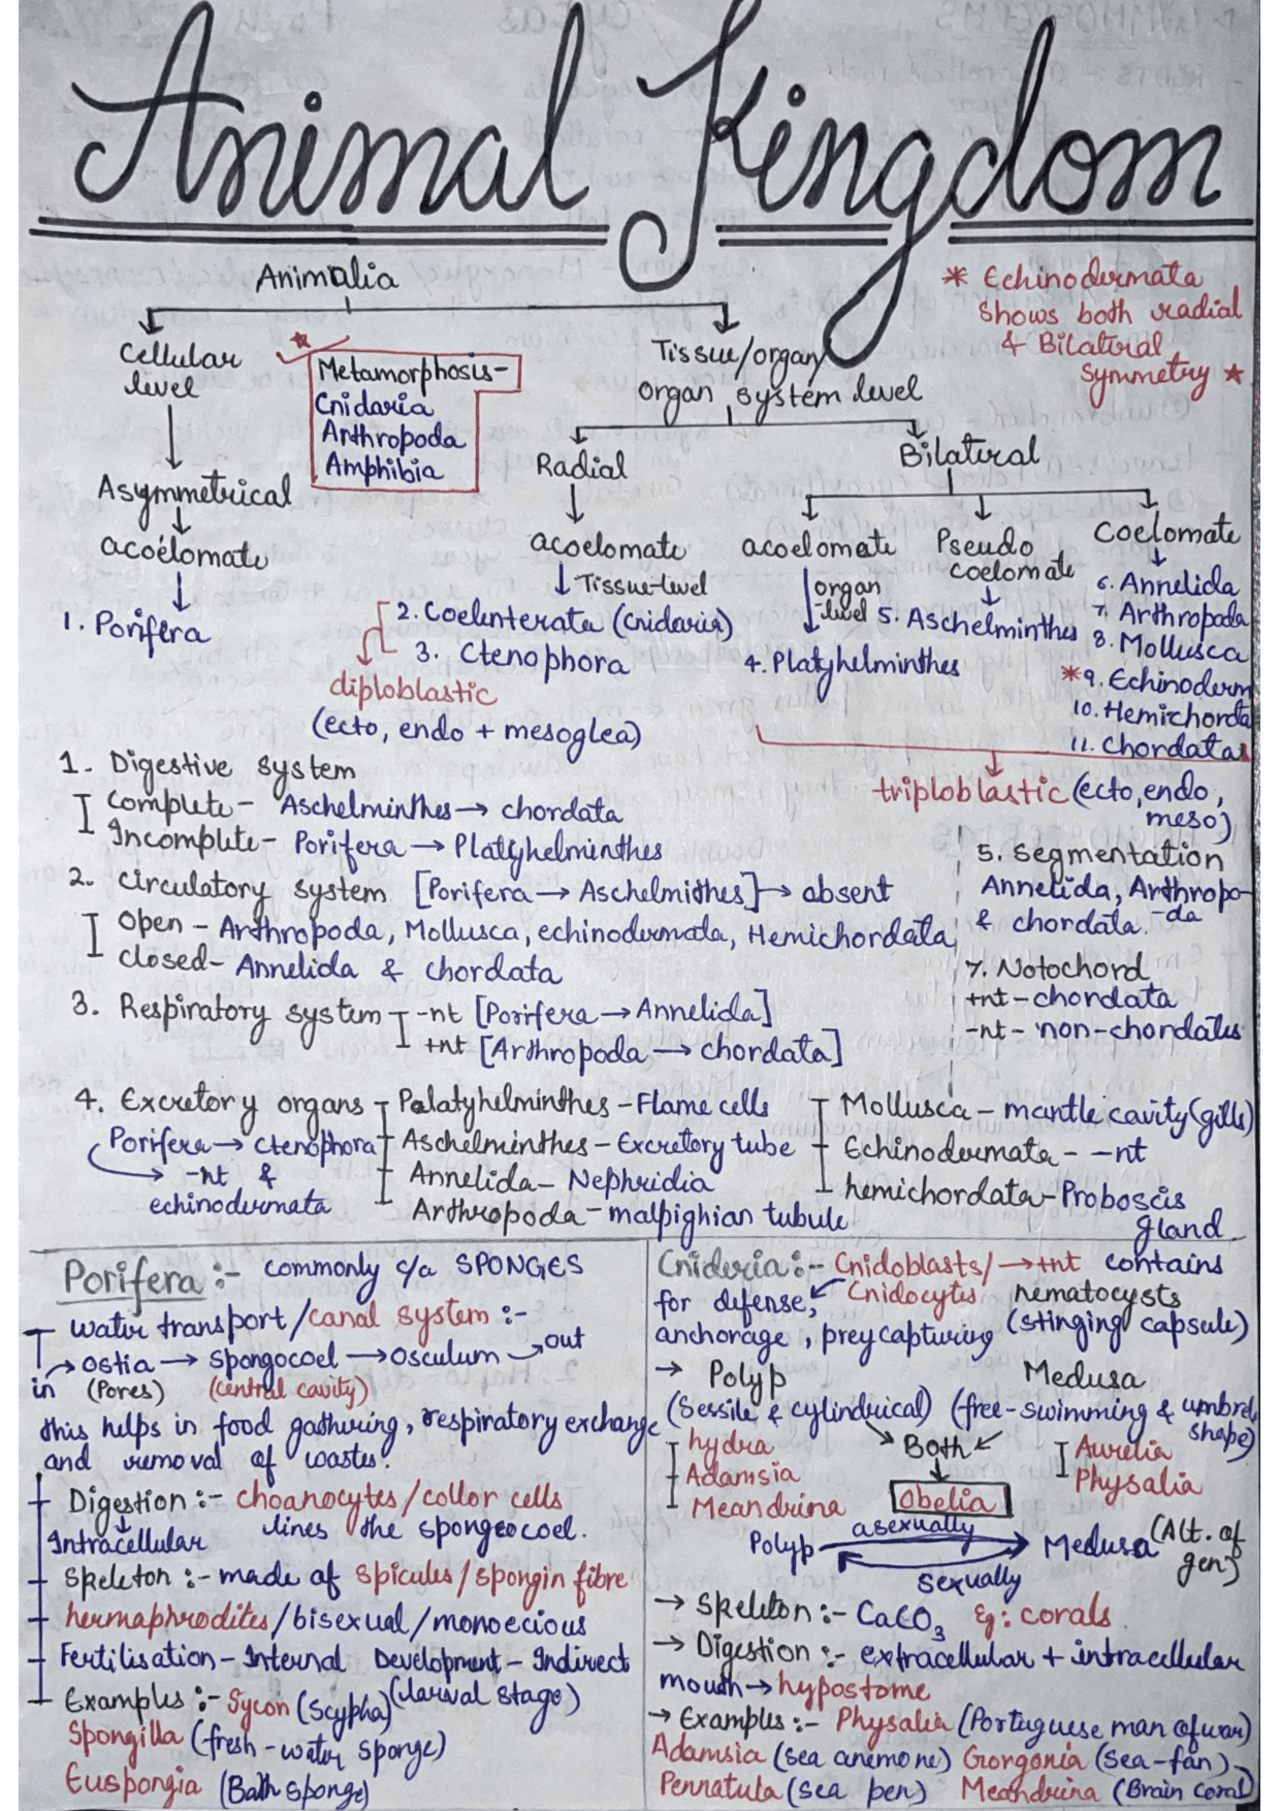 Animal Kingdom
Animalia
* Echinodermata
shows both radial
& Bilateral
symmetry ★
Cellular
level
Asymmetrical
acoelomate
1. Porifera
★
Metamorphosis-
Cnidaria
Arthropoda
Amphibia
Tissue/organ/
organ system level
Radial
acoelomate
Tissue-level
2. Coelenterata (Cnidaria)
3. Ctenophora
diploblastic
(ecto, endo + mesoglea)
Bilateral
acoelomate
organ
-level
4. Platyhelminthes
Pseudo
coelomate
5. Aschelminthes
Coelomate
6. Annelida
7. Arthropoda
8. Mollusca
*9. Echinoderm
10. Hemichorda
11. Chordata
triploblastic (ecto, endo,
meso)
1. Digestive system
Complete - Aschelminthes → chordata
Incomplete - Porifera → Platyhelminthes
2. Circulatory system [Porifera → Aschelmithes] → absent
Open - Arthropoda, Mollusca, echinodermata, Hemichordata
closed - Annelida & chordata
3. Respiratory system -nt [Porifera → Annelida]
+nt [Arthropoda → chordata]
5. Segmentation
Annelida, Arthropo-
& chordata. -da
7. Notochord
+nt - chordata
-nt - non-chordates
4. Excretory organs
Porifera → Ctenophora
→ -nt &
echinodermata
Palatyhelminthes - Flame cells
Aschelminthes - Excretory tube
Annelida - Nephridia
Arthropoda - malpighian tubule
Mollusca - mantle cavity (gills)
Echinodermata - -nt
hemichordata - Proboscis
gland
Porifera :- commonly c/a SPONGES
water transport/canal system :-
→ ostia → spongocoel → osculum → out
in (Pores) (central cavity)
this helps in food gathering, respiratory exchange
and removal of wastes.
Digestion :- choanocytes/collor cells
Intracellular lines the spongeocoel.
Skeleton :- made of spicules/spongin fibre
hermaphrodites/bisexual/monoecious
Fertilisation - Internal Development - Indirect
(larval stage)
Examples :- Sycon (Scypha)
Spongilla (fresh-water sponge)
Euspongia (Bath sponge)
Cnideria :- Cnidoblasts/ → +nt contains
for defense, Cnidocytes nematocysts
anchorage, prey capturing (stinging capsule)
→ Polyp Medusa
(Sessile & cylindrical) (free-swimming & umbrel
shape)
hydra
Adamsia
Meandrina
Both
Obelia
Aurelia
Physalia
Polyp asexually Medusa (Alt. of
sexually gen)
→ Skeleton :- CaCO3 Eg: corals.
→ Digestion :- extracellular + intracellular
mouth → hypostome
→ Examples :- Physalia (Portuguese man of war)
Adamsia (sea anemone) Gorgonia (sea-fan)
Pennatula (sea pen) Meandrina (Brain coral)